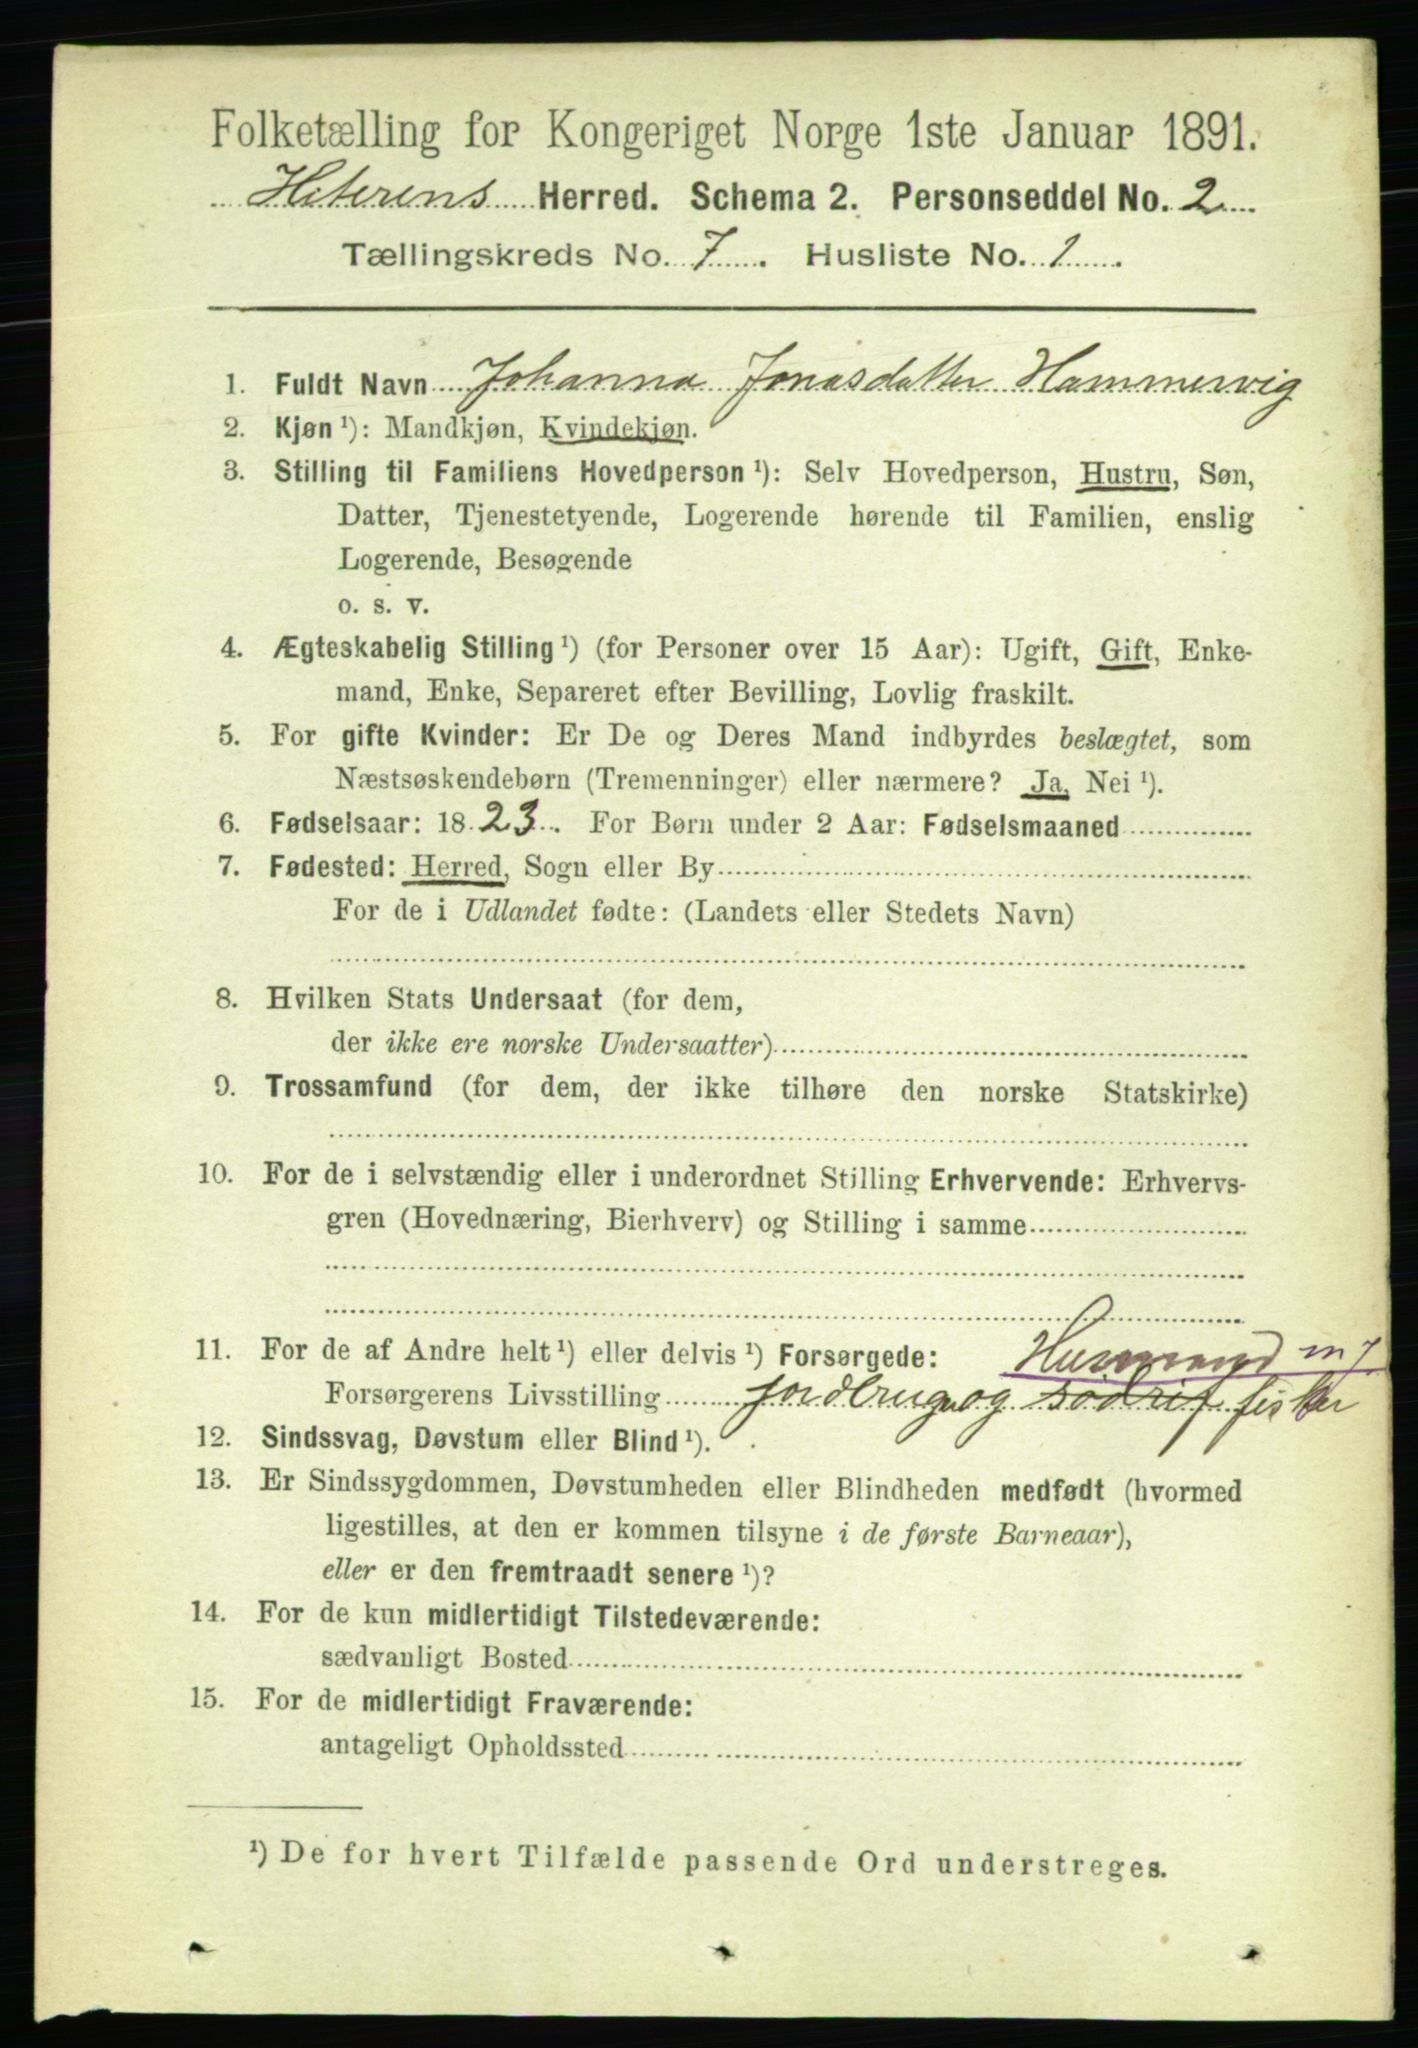 Folketælling for Kongeriget Norge 1ste Januar 1891.
Hiterens Herred. Schema 2. Personseddel No. 2
Tællingskreds No. 7. Husliste No. 1.
1. Fuldt Navn Johanna Jonasdatter Hammervig
2. Kjøn ¹): Mandkjøn, Kvindekjøn.
3. Stilling til Familiens Hovedperson ¹): Selv Hovedperson, Hustru, Søn,
Datter, Tjenestetyende, Logerende hørende til Familien, enslig
Logerende, Besøgende
o. s. v.
4. Ægteskabelig Stilling ¹) (for Personer over 15 Aar): Ugift, Gift, Enke-
mand, Enke, Separeret efter Bevilling, Lovlig fraskilt.
5. For gifte Kvinder: Er De og Deres Mand indbyrdes beslægtet, som
Næstsøskendebørn (Tremenninger) eller nærmere? Ja, Nei ¹).
6. Fødselsaar: 1823. For Børn under 2 Aar: Fødselsmaaned
7. Fødested: Herred, Sogn eller By
For de i Udlandet fødte: (Landets eller Stedets Navn)
8. Hvilken Stats Undersaat (for dem,
der ikke ere norske Undersaatter)
9. Trossamfund (for dem, der ikke tilhøre den norske Statskirke)
10. For de i selvstændig eller i underordnet Stilling Erhvervende: Erhvervs-
gren (Hovednæring, Bierhverv) og Stilling i samme
11. For de af Andre helt ¹) eller delvis ¹) Forsørgede: Husmand m J
Forsørgerens Livsstilling jordbrug og fisker
12. Sindssvag, Døvstum eller Blind ¹).
13. Er Sindssygdommen, Døvstumheden eller Blindheden medfødt (hvormed
ligestilles, at den er kommen tilsyne i de første Barneaar),
eller er den fremtraadt senere ¹)?
14. For de kun midlertidigt Tilstedeværende:
sædvanligt Bosted
15. For de midlertidigt Fraværende:
antageligt Opholdssted
¹) De for hvert Tilfælde passende Ord understreges.